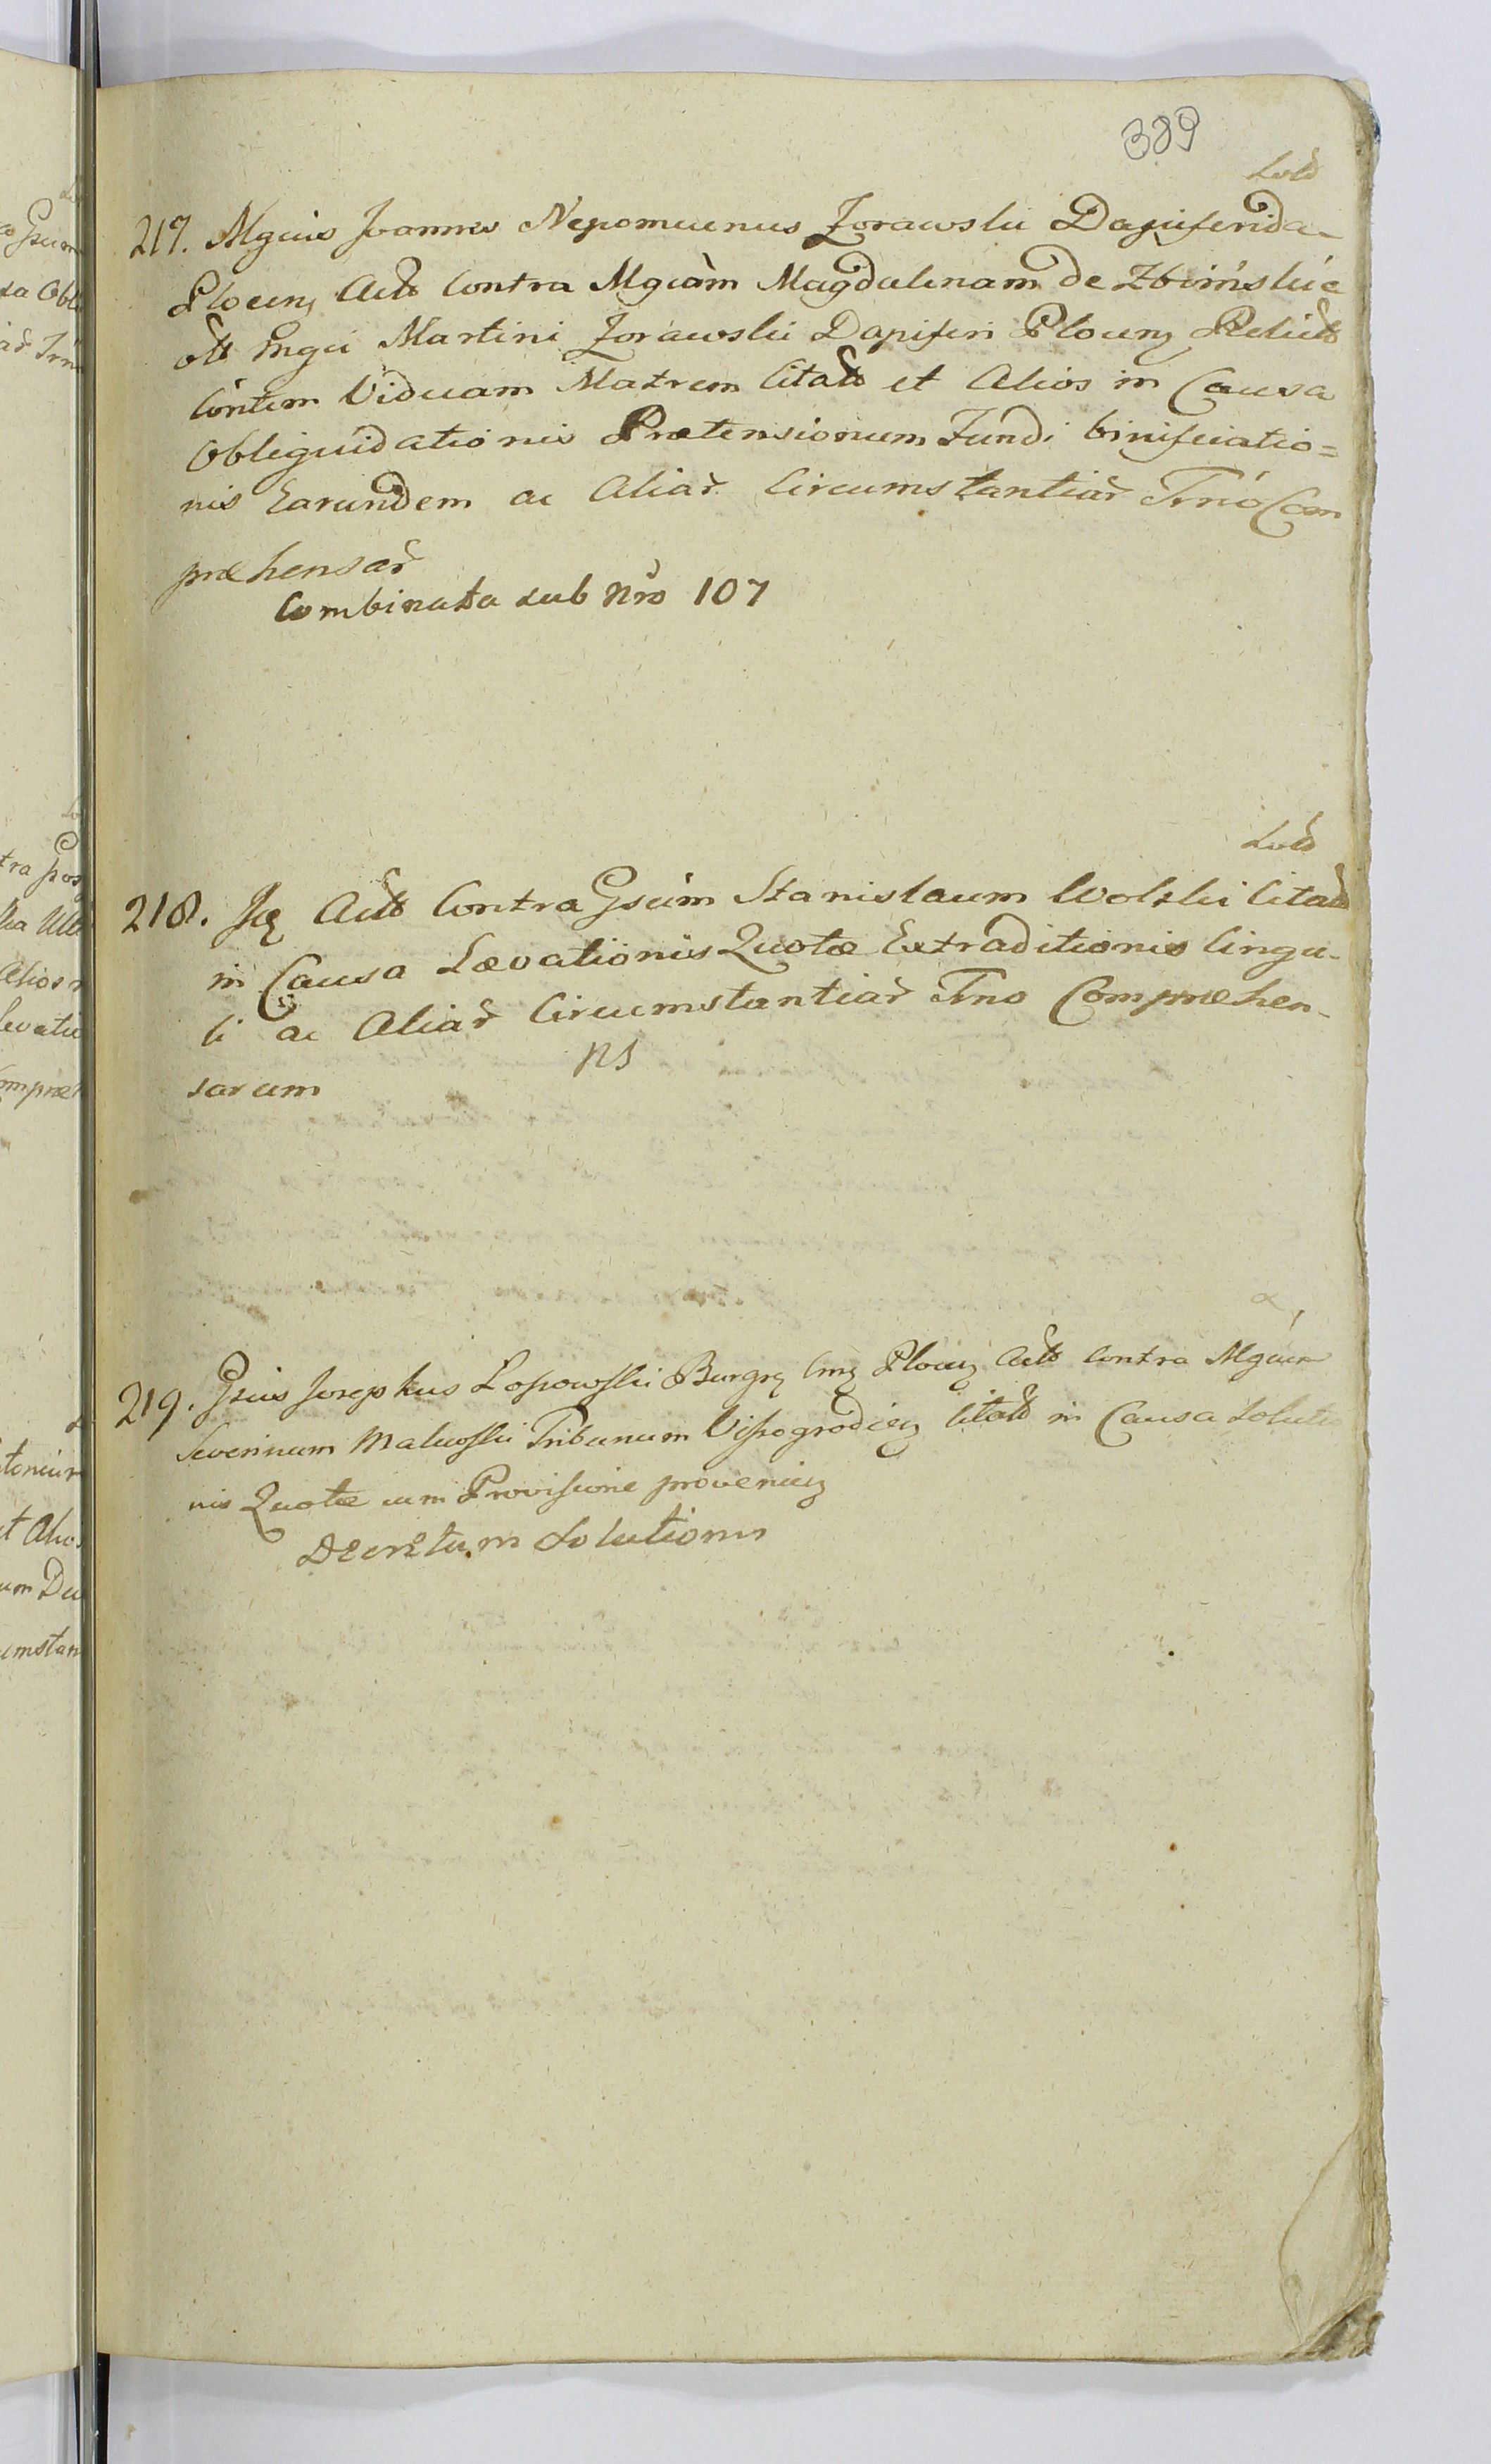 389
Sold
217. Mgcus Joannes Nepomucenus Zorawski Dapiferida
Plocen̄ Actō Contra Mgcàm Magdalenam de Zboinskie
olt Mgci Martini Zorawski Dapiferi Plocen̄ Relictō
Contem Viduam Matrem Citatō et Alios in Causa
Obliquidationis Prætensionum Fundi bnificiatio=
nis Earundem ac Aliar̄ Circumstantiar̄ Trno Com
præhensar̄
Combinata sub Nrō 107
Sold
218. Actō Contra Gsum Stanislaum Wolski Citatō
in Causa Lævationis Quotæ Extraditionis Cingu-
li ac Aliar̄ Circumstantiar̄ Trno Compræhen-
sarum
ns
219. Gsus Josephus Lossowski Burgr̄ Plocen̄ Actō Contra Mgcum
Severinum Malewski Tribunum Vissogrodien̄ Citatō in Causa Solutio
nis Quotæ cum Provisione provenien̄
Decretum Solutionis